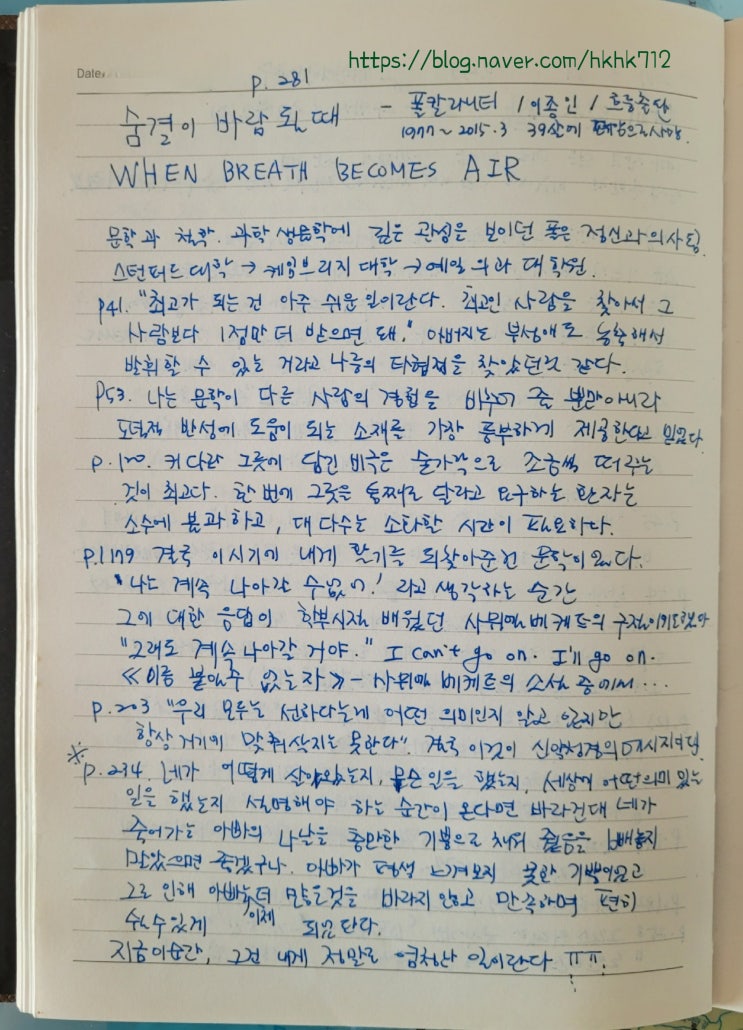 https://blog.naver.com/hkhk712
Date.
p. 281
숨결이 바람 될 때 - 폴칼라니티 / 이종인 / 흐름출판
1977 ~ 2015.3 39살에 폐암으로 사망.
WHEN BREATH BECOMES AIR
문학과 철학. 과학 생물학에 깊은 관심을 보이던 폴은 정신과의사
스탠퍼드 대학 → 케임브리지 대학 → 예일 의과 대학원.
p41. "최고가 되는 건 아주 쉬운 일이란다. 최고인 사람을 찾아서 그
사람보다 1점만 더 받으면 돼." 아버지는 부성애도 농축해서
발휘할 수 있는 거라고 나름의 타협점을 찾았던것 같다.
P53. 나는 문학이 다른 사람의 경험을 비추어 줄 뿐만아니라
도덕적 반성에 도움이 되는 소재를 가장 풍부하게 제공한다고 믿었다
p.120. 커다란 그릇에 담긴 비극은 숟가락으로 조금씩 떠주는
것이 최고다. 한 번에 그릇을 통째로 달라고 요구하는 환자는
소수에 불과하고, 대다수는 소화할 시간이 필요하다.
p.179 결국 이시기에 내게 활기를 되찾아준건 문학이었다.
'나는 계속 나아갈 수없어! 라고 생각하는 순간
그에 대한 응답이 학부시절 배웠던 사뮈엘베케트의 구절이
"그래도 계속 나아갈 거야." I can't go on. I'll go on.
≪이름 붙일수 없는자≫ - 사뮈엘 베케트의 소설 중에서...
p.203 "우리 모두는 선하다는게 어떤 의미인지 알고 있지만
항상 거기에 맞춰살지는 못한다". 결국 이것이 신약성경의 메시지
※
p.234. 네가 어떻게 살아왔는지, 무슨일을 했는지, 세상에 어떤의미 있는
일을 했는지 설명해야 하는 순간이 온다면 바라건대 네가
죽어가는 아빠의 나날을 충만한 기쁨으로 채워 줬음을 빼놓지
말았으면 좋겠구나. 아빠가 평생 느껴보지 못한 기쁨이었고
그로 인해 아빠는 더 많은것을 바라지 않고 만족하며 편히
쉴수있게 이제 되었단다.
지금이순간, 그건 내게 정말로 엄청난 일이란다 ㅠㅠ.